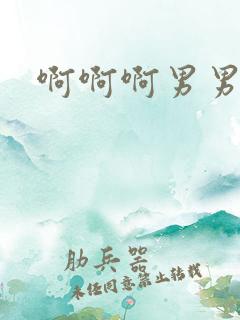 啊啊啊男男
肋兵器
未经同意禁止转载